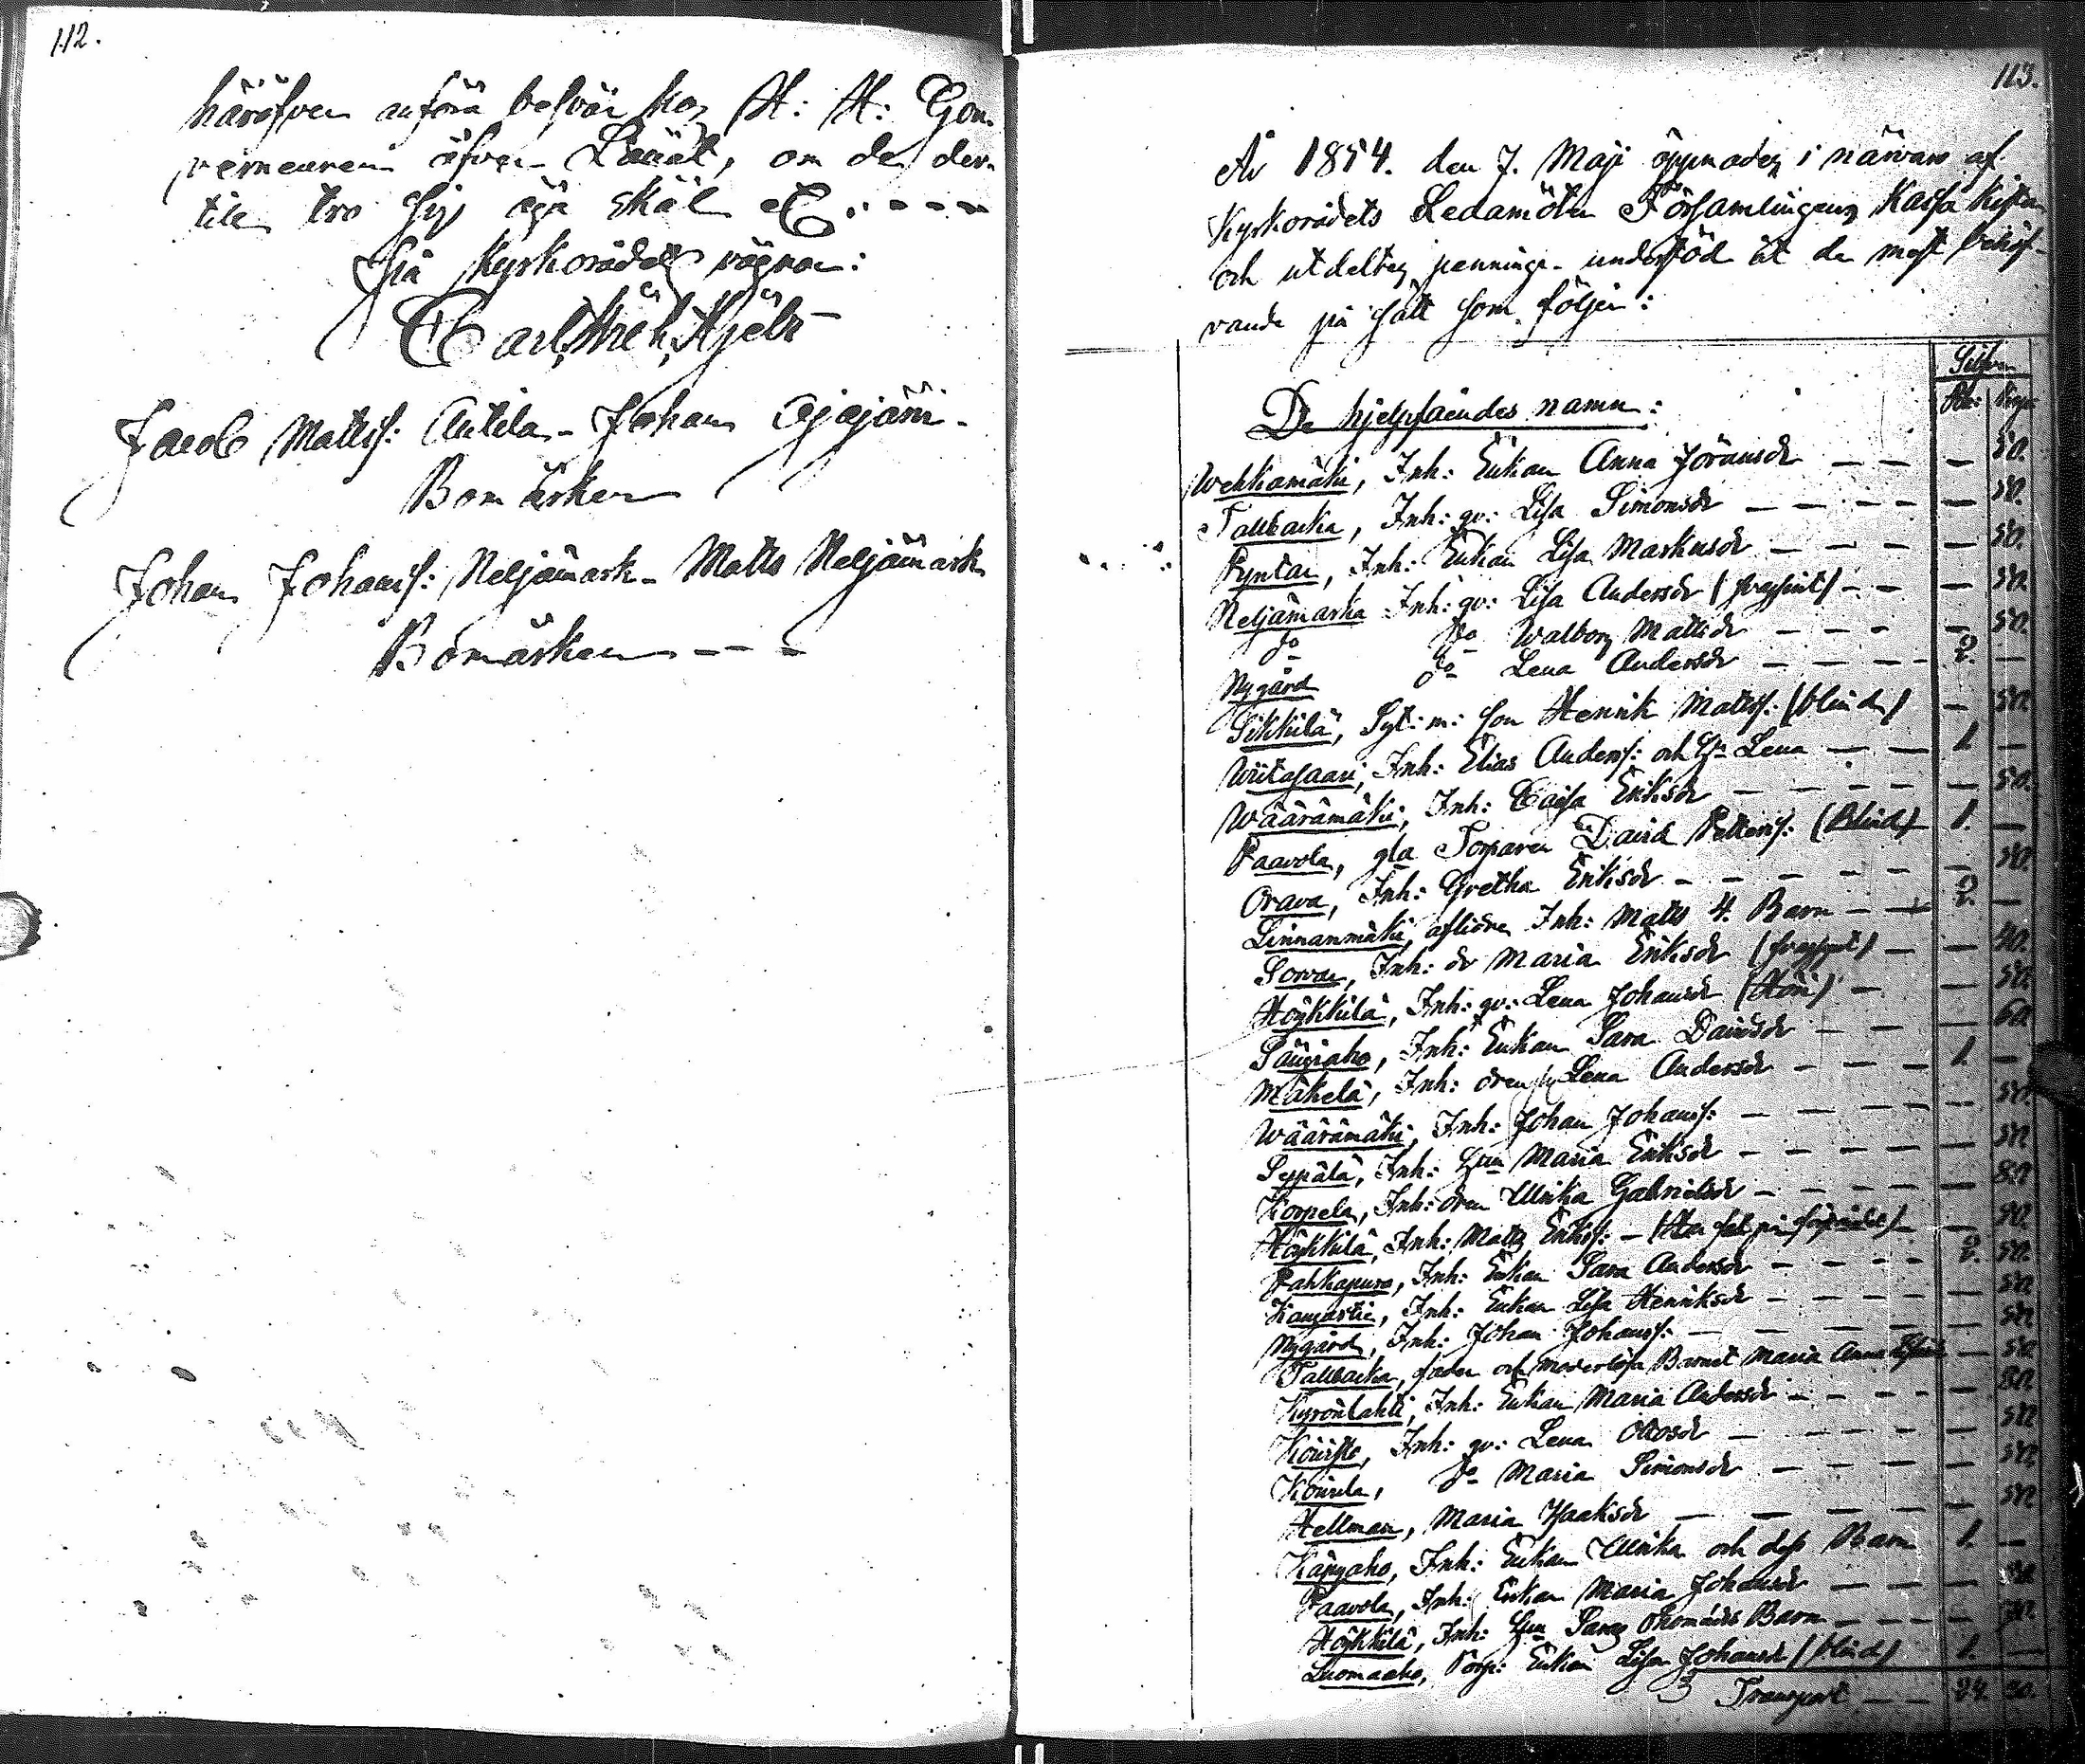 112.
häröfver anföra besvär hos H: H: Gou-
verneuren öfver Länet, om de der-
till tro sig äga skäl etc. - - - -
På Kyrkorådets vägnar:
Carl Hielt
Jacob Mattsf: Antila - Johan Ojajärvi -
Bomärken
Johan Johansf: Neljämark - Matts Neljämark
Bomärken - - -
113.
År 1854. den 7. Maji öppnades i närvaro af
Kyrkorådets Ledamöter Församlingens Kassa Kista
och utdeltes pennings-understöd åt de mest behöf-
vande på sätt som följer:
Silfver
De hjelpsäendes namn: Rb: Kop:
Wehkamäki, Inh: Enkan Anna Jöransdr - - - 50.
Tallbacka, Inh: qv: Lisa Simonsdr - - - - 50.
Pyntäri, Inh: Enkan Lisa Markusdr - - - - 50.
Neljämarka Inh: qv: Lisa Andersdr - - - 50.
do do Walborg Mattsdr - - - - 50.
Nygård do Lena Andersdr - - - - 2. -
Sikkilä, Syt: m: son Henrik Mattsf: (blind) - 50.
Wiitasaari, Inh: Elias Andersf: och Lena - - 1. -
Wäärämäki, Inh: Cajsa Eriksdr - - - - - 50.
Paavola, gla Torparen David Pettersf: (Blind) 1. -
Orava, Inh: Gretha Eriksdr - - - - - - 50.
Linnanmäki, aflidne Inh: Matts 4. Barn - - 2. -
Sorvari, Inh: dr Maria Eriksdr - - 40.
Höykkilä, Inh: qv: Lena Johansdr - - 50.
Inh: Enkan Sara Davidsdr - - - 60.
Mäkelä, Inh: Lena Andersdr - - - 1. -
Wäärämäki, Inh: Johan Johansf: - - - - 50.
Seppälä, Inh: Maria Eriksdr - - - - - 50.
Korpela, Inh: Ulrika Gabrielsdr - - - - - 80.
Höykkilä, Inh: Matts Eriksf: - 50.
Pahkapuro, Inh: Enkan Sara Andersdr - - - - 2. 50.
Kangastie, Inh: Enkan Lisa Henriksdr - - - - - 50.
Nygård, Inh: Johan Johansf: - - - - - 50.
Tallbacka, fader och moderlösa Barnet Maria Anna - 50.
Kyrönlahti, Inh: Enkan Maria Andersdr - - - - - 80.
Koivisto, Inh: qv: Lena - - - - - 50.
Koivula, do Maria Simonsdr - - - - - 50.
Hellman, Maria Isaksdr - - - - - 50.
Inh: Enkan Ulrika och dess Barn 1. -
Paavola, Inh: Enkan Maria Johansdr - - - -
Höykkilä, Inh: Saras Barn - - - -
Luomaaho, Torp: Enkan Lisa Johansdr (blind) 1. -
Transport - - 24. 30.